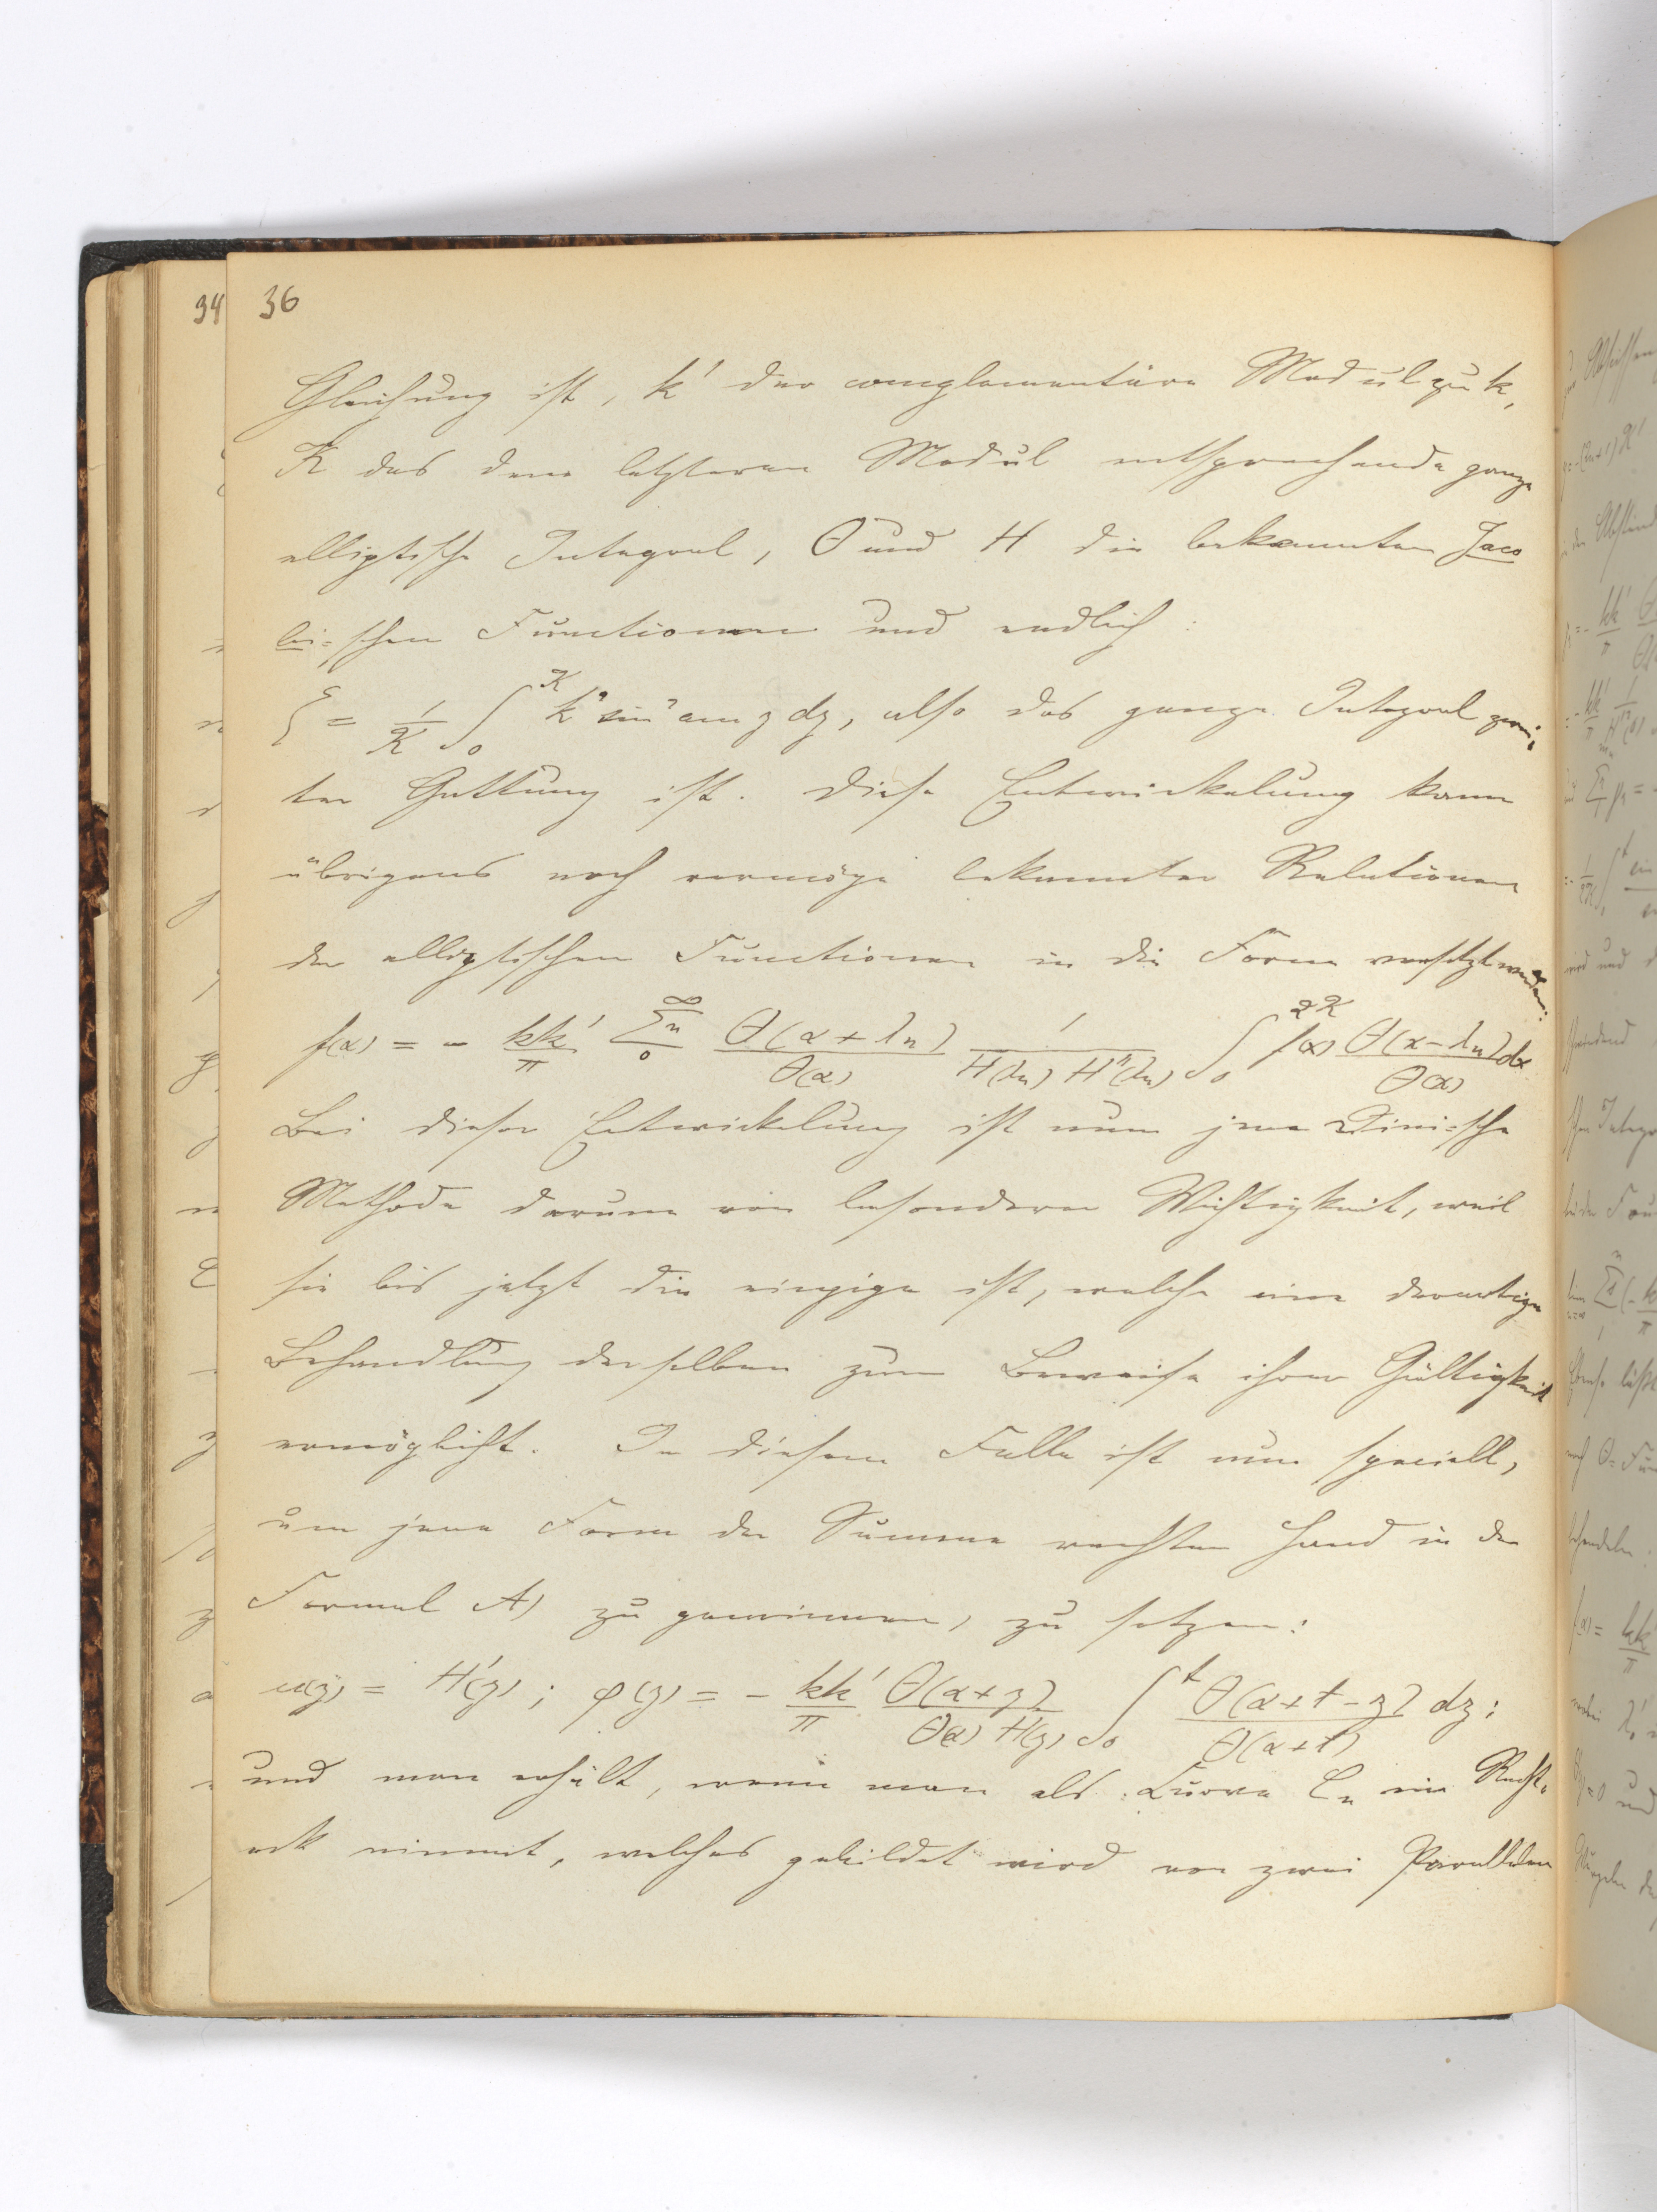 34 36
Gleichung ist, k' der complementäre Modul zu k,
K das dem letzteren Modul entsprechende ganze
elliptische Integral, Θ und H die bekannten Jaco
bi-schen Functionen und endlich:
ξ = 1/K ∫₀^K k² sin² am z dz, also das ganze Integral zwei-
ter Gattung ist. Diese Entwickelung kann
übrigens noch vermöge bekannter Relationen
der elliptischen Functionen in die Form versetzt werden:
f(α) = - kk'/π Σn₀^∞ Θ(α+λn)/Θ(α) 1/H(λn) H''(λn) ∫₀^2K f(x) Θ(x-λn)dx/Θ(x)
Bei dieser Entwickelung ist nun jene Dini-sche
Methode darum von besonderer Wichtigkeit, weil
sie bis jetzt die einzige ist, welche eine derartige
Behandlung derselben zum Beweise ihrer Gültigkeit
ermöglicht. In diesem Falle ist nun speciell,
um jene Form der Summe rechter Hand in der
Formel A) zu gewinnen, zu setzen:
w(z) = H'(z); φ(z) = - kk'/π Θ(α+z)/Θ(α) H(z) ∫₀^t Θ(α+t-z)/Θ(α+t) dz;
und man erhält, wenn man als Curve Cn ein Recht-
eck nimmt, welches gebildet wird von zwei Parallelen